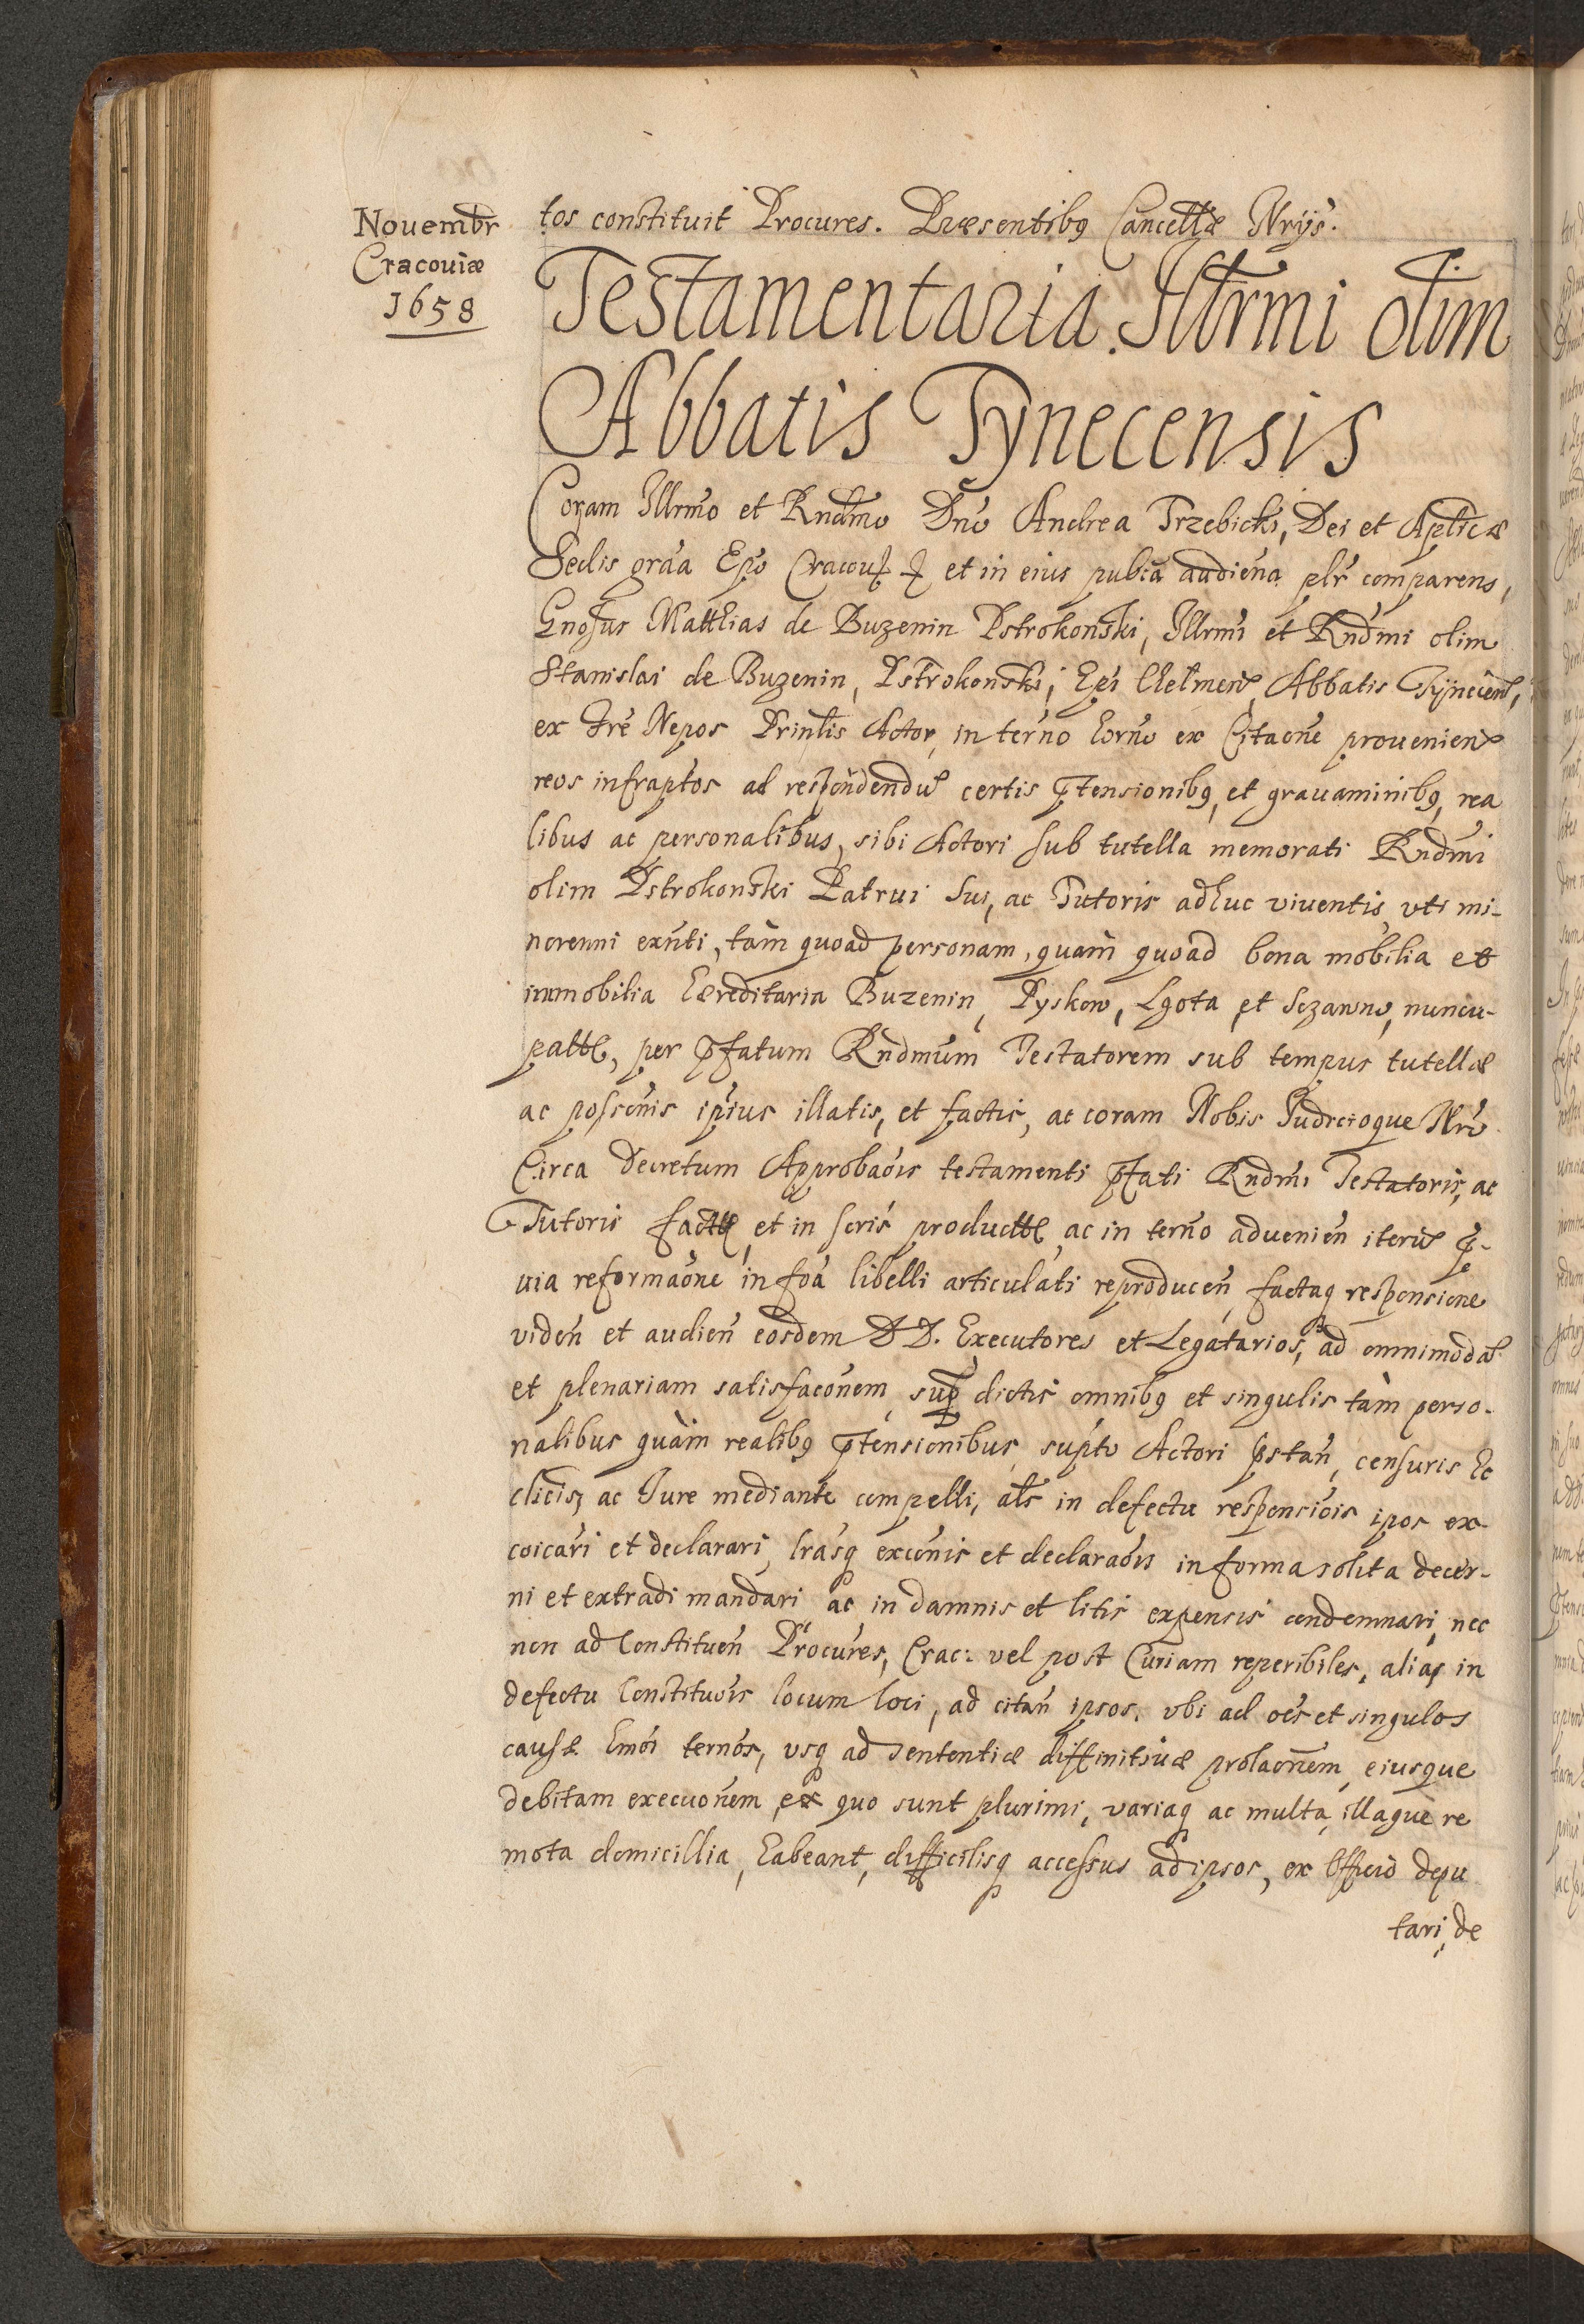 Nouembr
Cracouiæ
1658
tos constituit Procures. Præsentibq Cancellæ Nrijs.
Testamentaria Illrmi olim
Abbatis Tynecensis
Coram Illrmo et Rndmo Dno Andrea Trzebicki, Dei et Aplicæ
Sedis graa Epo et in eius publca audiena plr comparens,
Gnosus Matthias de Buzenin Pstrokonski, Illrmi et Rndmi olim
Stanislai de Buzenin, Pstrokonski, Epi Chelmen, Abbatis Tynecen,
ex Fre Nepos Prinlis Actor, in terno horno ex Citaone prouenien
reos infraptos ad respondendu certis ptensionibq, et grauaminibq, rea
libus ac personalibus, sibi Actori sub tutella memorati Rndmi
olim Pstrokonski Patrui sui, ac Tutoris adhuc viuentis, vti mi-
norenni exnti, tam quoad personam, quam quoad bona mobilia et
immobilia hæreditaria Buzenin, Pyskow, Lgota et Sczawno, nuncu-
patt, per pfatum Rndmum Testatorem sub tempus tutellæ
ac possonis ipius illatis, et factis, ac coram Nobis Judicioque Nro
Circa Decretum Approbaois testamenti pfati Rndmi Testatoris, ac
Tutoris fact, et in scris product, ac in terno aduenien iteru p-
uia reformaone in foa libelli articulati reproducen, factaq responsione
viden et audien eosdem DD. Executores et Legatarios, ad omnimoda
et plenariam satisfaconem, sup dictis omnibq et singulis tàm perso-
nalibus quàm realibq ptensionibus, supto Actori pstan, censuris Ec
clicis, ac Jure mediante compelli, als in defectu responsiois ipos ex-
coicari et declarari, lrasq exconis et declaraois in forma solita decer-
ni et extradi mandari, ac in damnis et litis expensis condemnari, nec
non ad Constituen Procures, Crac: vel post Curiam reperibiles, alias in
defectu Constituois locum loci, ad citan ipsos. vbi ad oes et singulos
causæ hmoi ternos, vsq ad sententiæ diffinitiuæ prolaonem, eiusque
debitam execuonem, ex quo sunt plurimi, variaq ac multa, illaque re
mota domicillia, habeant, difficilisq accessus ad ipsos, ex Officio depu
tari, de